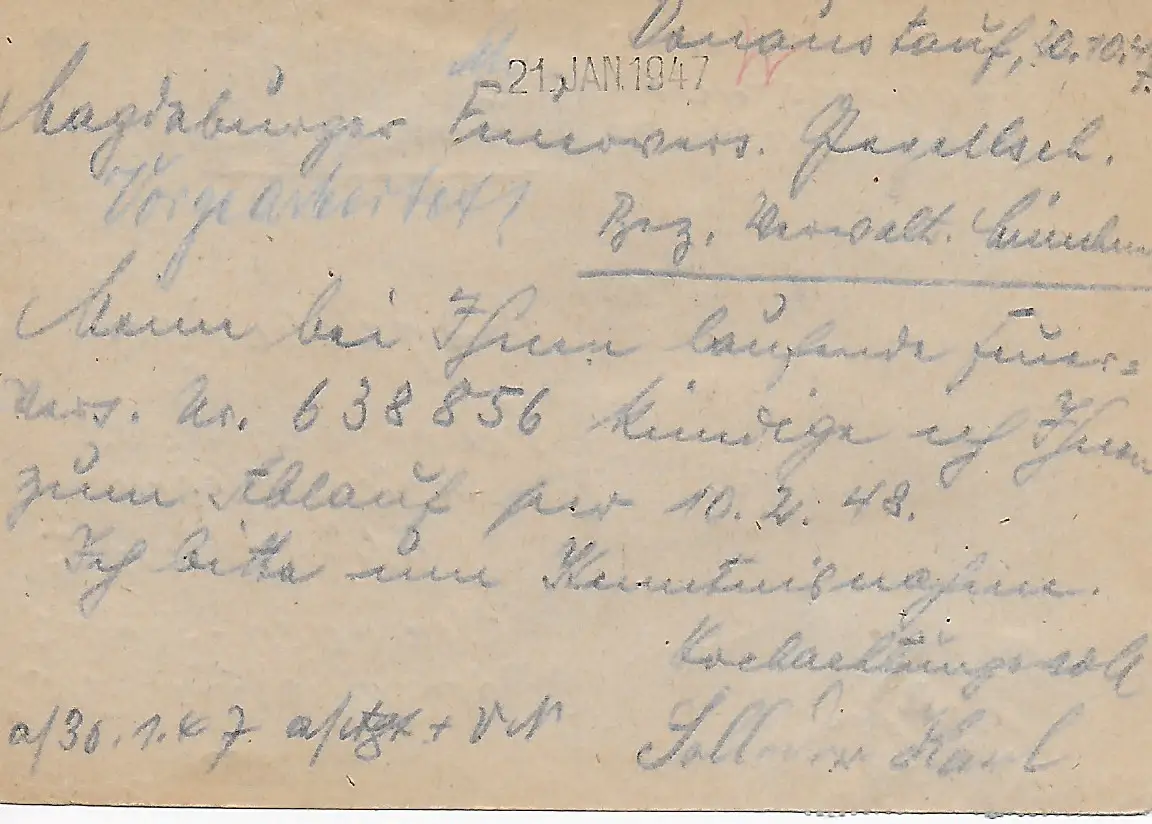 Donaustauf, 20.10.4
21. JAN. 1947
Magdeburger Feuervers. Gesellsch.
Vorgearbeitet!
Bez. Verwalt. München
Meine bei Ihnen laufende Feuer=
Vers. Nr. 638856 kündige ich Ihnen
zum Ablauf per 10.2.48.
Ich bitte um Kenntnisnahme.
Hochachtungsvoll
Karl
a/30.1.47 + VN